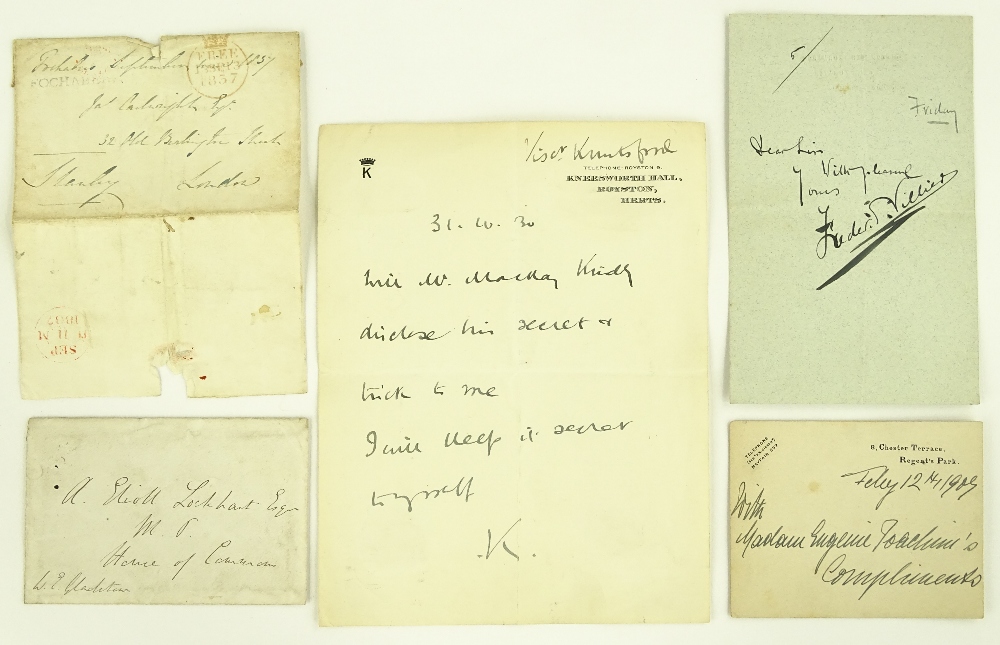 September 1837
FOCHABERS
FREE
1837
Jas Cartwright Esqr
32 Old Burlington Street
Stanley London
SEP
1837
A. Eliott Lockhart Esqr
M. P.
House of Commons
W. E. Gladstone
K
Visct Knutsford
TELEPHONE ROYSTON 9.
KNEESWORTH HALL,
ROYSTON,
HERTS.
31. 10. 30
Will Mr. Mackay Kindly
disclose his secret &
trick to me
I will keep it secret
to myself
K.
5/
Friday
Dear Sir
With pleasure
Yours
Frederic Villiers
TELEPHONE
8, Chester Terrace,
Regent's Park.
Feby 12th, 1909
With
Madam Eugenie Joachim's
Compliments